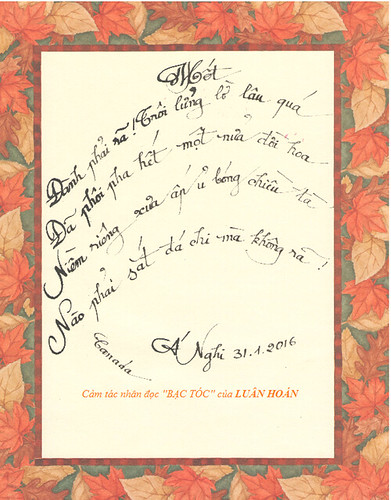 Một
Đành phải rã! Trôi lửng lờ lâu quá
Đã phôi pha hết một nửa đời hoa
Niềm riêng xưa ấp ủ bóng chiều tà
Nào phải sắt đá chi mà không rã!
Canada
Á Nghi 31.1.2016
Cảm tác nhân đọc "BẠC TÓC" của LUÂN HOÁN